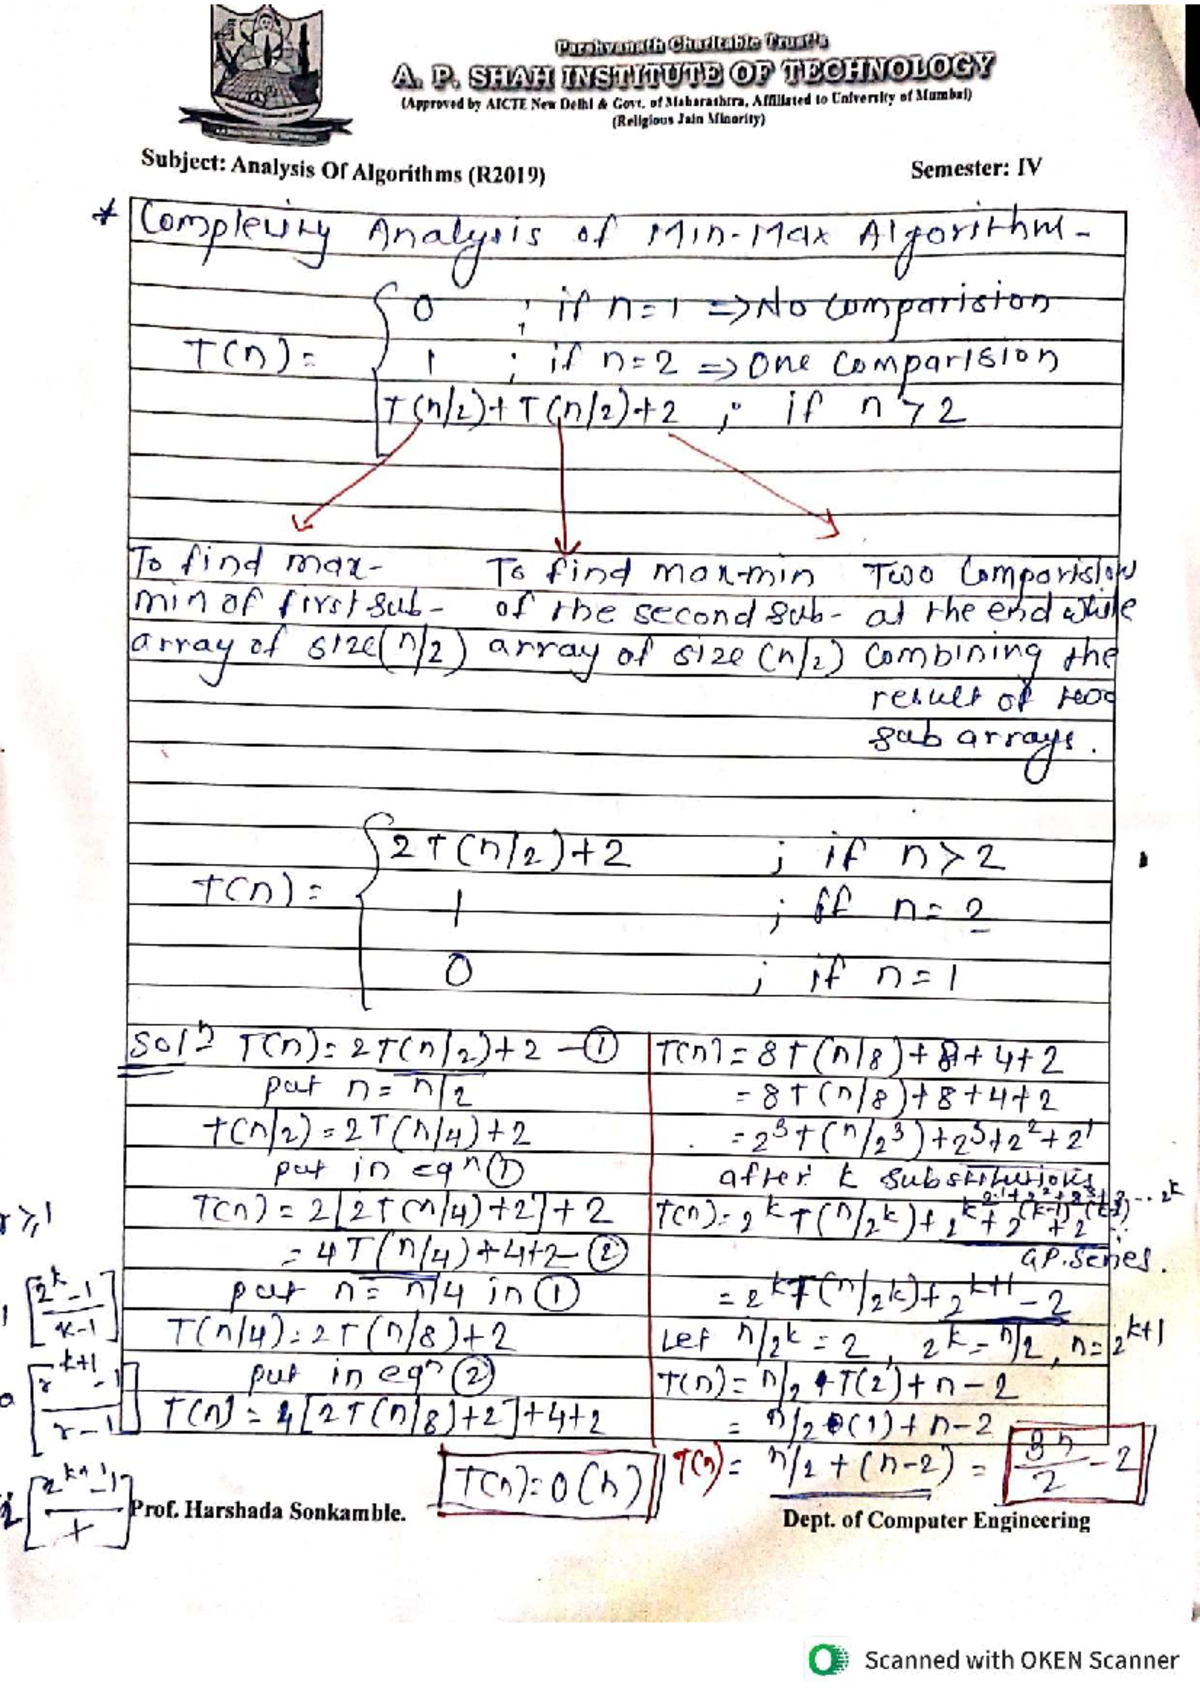 Parshvanath Charitable Trust's
A. P. SHAH INSTITUTE OF TECHNOLOGY
(Approved by AICTE New Delhi & Govt. of Maharashtra, Affiliated to University of Mumbai)
(Religious Jain Minority)
Subject: Analysis Of Algorithms (R2019)
Semester: IV
* Complexity Analysis of Min-Max Algorithm-
T(n) =
0 ; if n=1 => No comparision
1 ; if n=2 => One comparision
T(n/2)+T(n/2)+2 ; if n>2
To find max-
min of first sub-
array of size(n/2)
To find max-min
of the second sub-
array of size (n/2)
Two Comparision
at the end while
combining the
result of two
sub arrays.
T(n) =
2T(n/2)+2 ; if n>2
1 ; if n=2
0 ; if n=1
Solⁿ T(n) = 2T(n/2)+2 -①
put n = n/2
T(n/2) = 2T(n/4)+2
put in eqⁿ ①
T(n) = 2[2T(n/4)+2]+2
= 4T(n/4)+4+2 -②
put n = n/4 in ①
T(n/4) = 2T(n/8)+2
put in eqⁿ ②
T(n) = 4[2T(n/8)+2]+4+2
T(n) = 8T(n/8)+8+4+2
= 8T(n/8)+8+4+2
= 2³T(n/2³)+2³+2²+2¹
after k substitutions
2¹+2²+2³+...2ᵏ
T(n) = 2ᵏT(n/2ᵏ)+2ᵏ+2
G.P. Series.
= 2ᵏT(n/2ᵏ)+2ᵏ⁺¹-2
Let n/2ᵏ = 2, 2ᵏ = n/2, n = 2ᵏ⁺¹
T(n) = n/2 T(2)+n-2
= n/2 (1)+n-2
T(n) = n/2+(n-2) = 3n/2 - 2
T(n) = O(n)
r ≥ 1
[2ᵏ-1 / r-1]
a [rᵏ⁺¹-1 / r-1]
2 [2ᵏ⁺¹-1 / 1]
Prof. Harshada Sonkamble.
Dept. of Computer Engineering
Scanned with OKEN Scanner